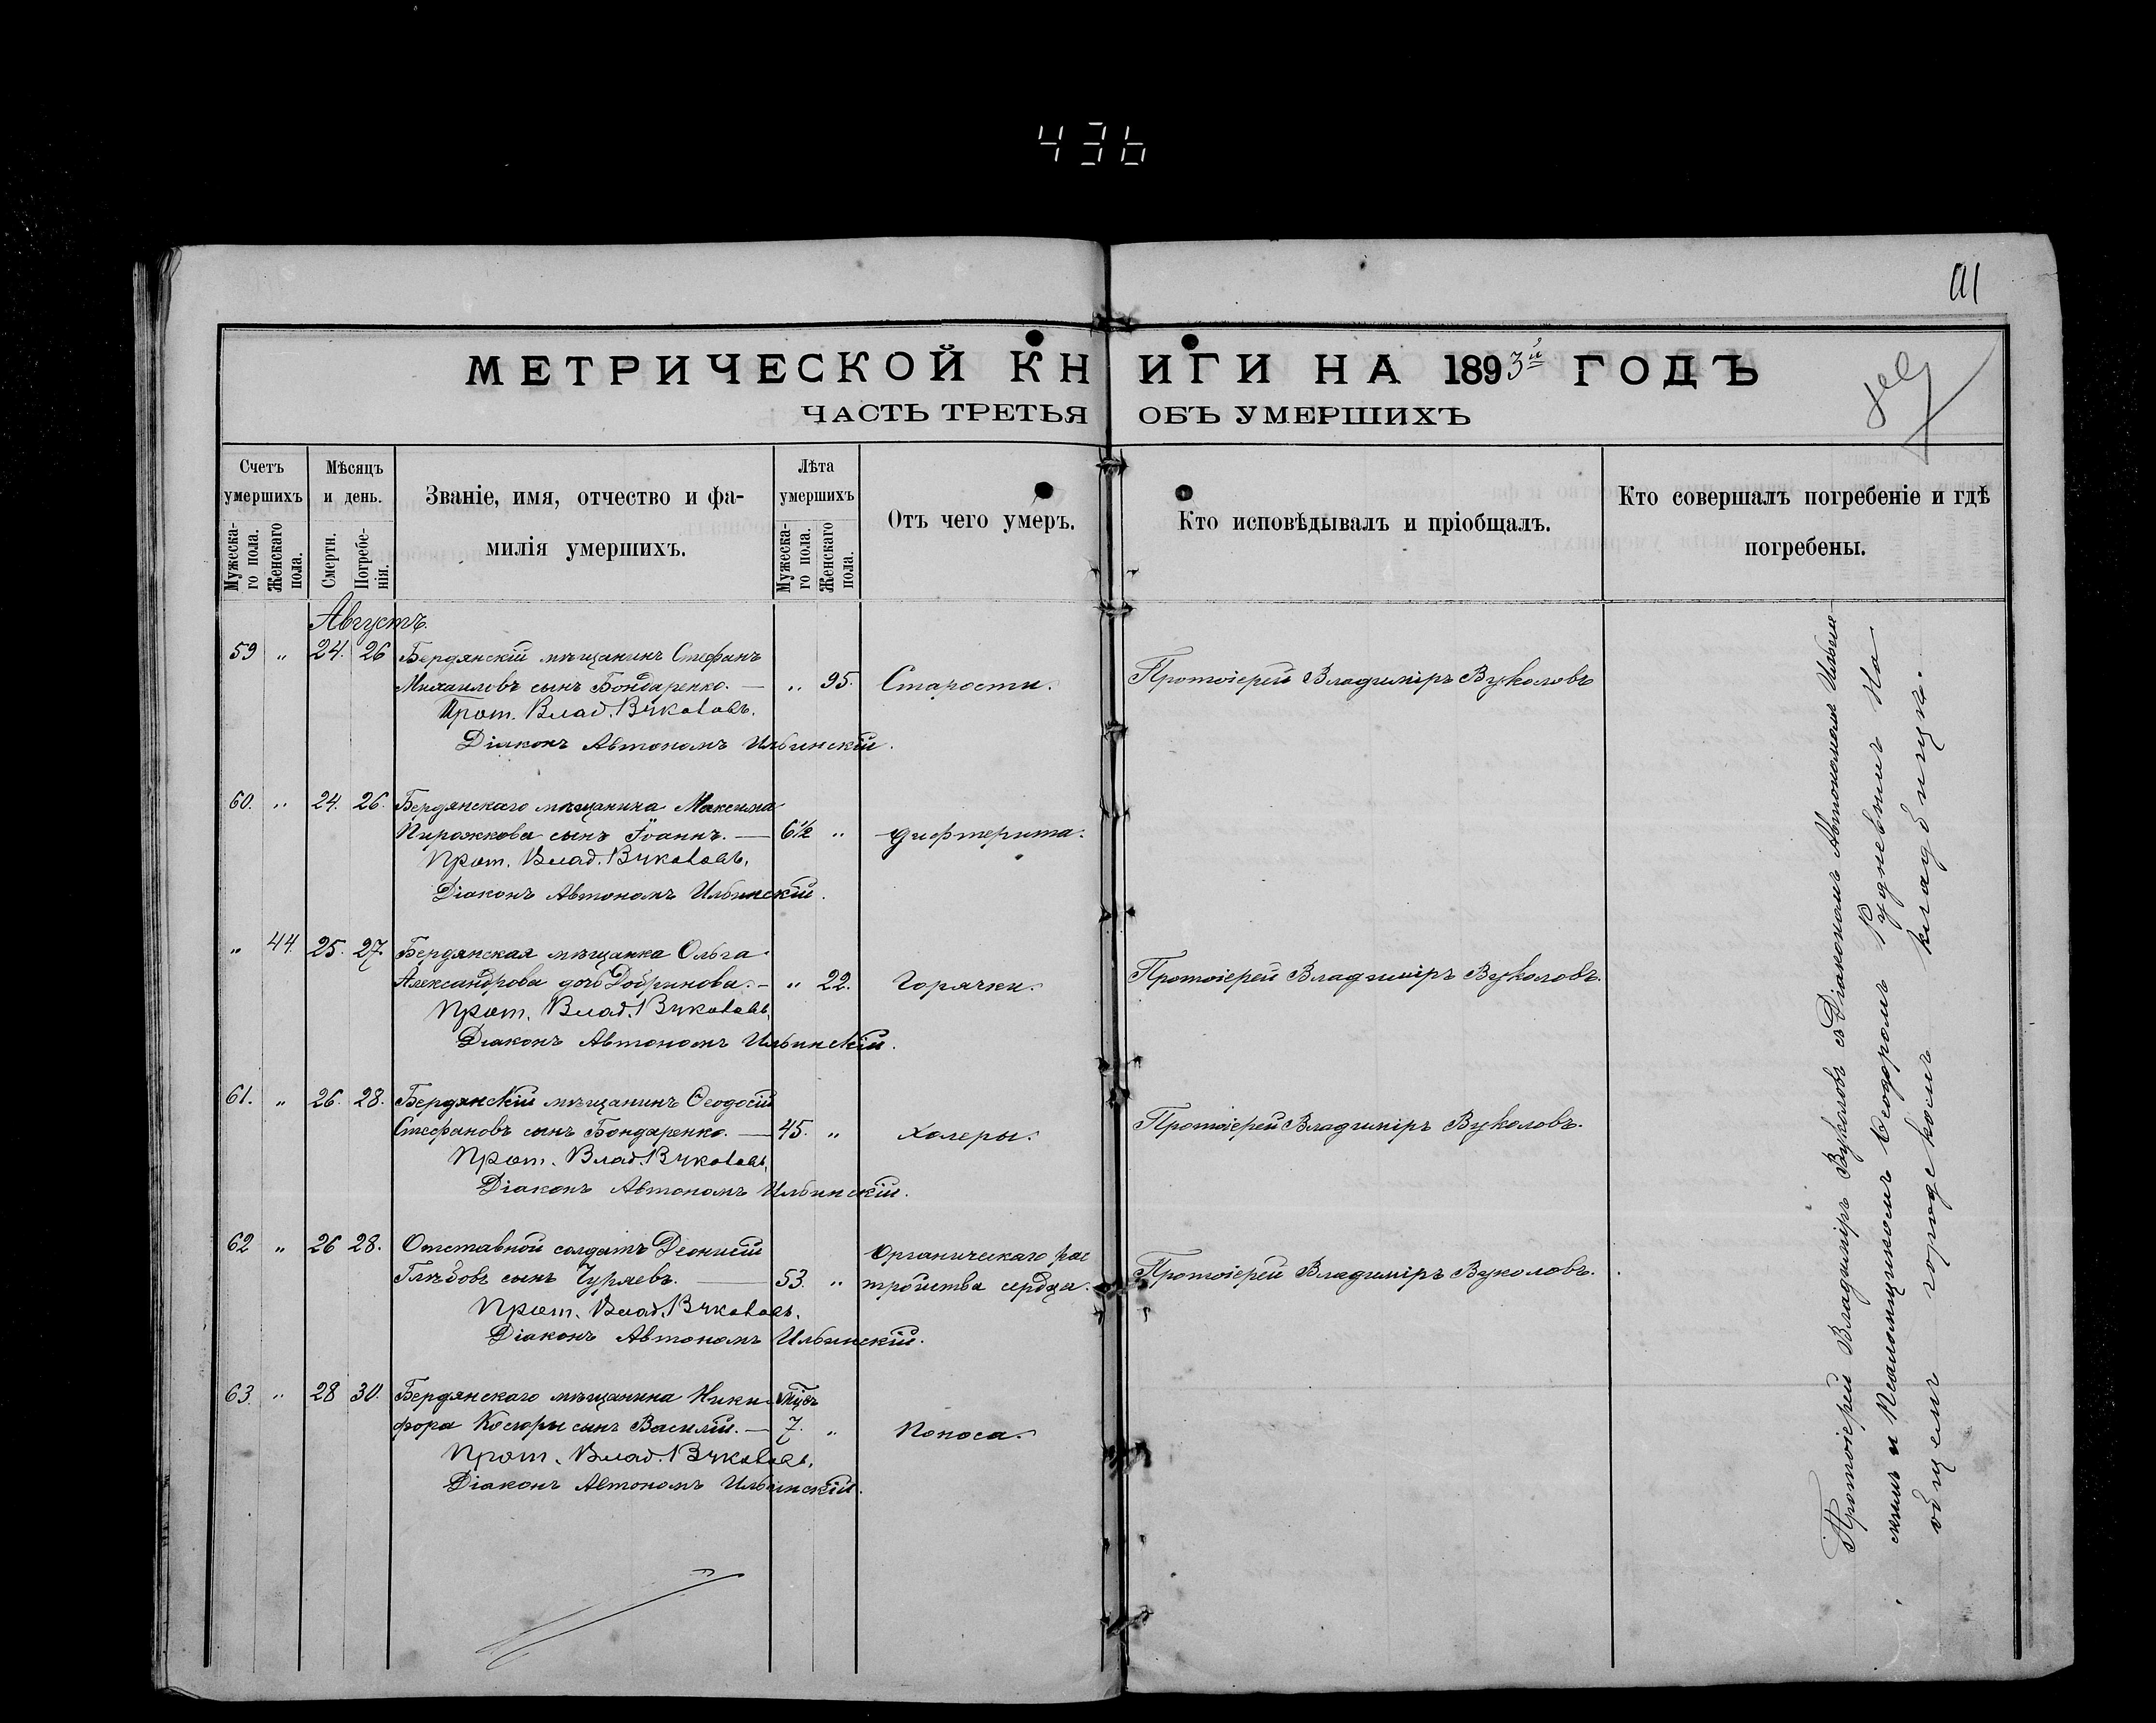 436
111
МЕТРИЧЕСКОЙ КНИГИ НА 1893й ГОДЪ
ЧАСТЬ ТРЕТЬЯ ОБЪ УМЕРШИХЪ
Счетъ умершихъ
Мужеска-го пола.
Женскаго пола.
Мѣсяцъ и день.
Смерти.
Погребе-нія.
Званіе, имя, отчество и фа-
милія умершихъ.
Лѣта умершихъ
Мужеска-го пола.
Женскаго пола.
Отъ чего умеръ.
Кто исповѣдывалъ и пріобщалъ.
Кто совершалъ погребеніе и гдѣ
погребены.
Августъ.
59 " 24. 26 Бердянскій мѣщанинъ Стефанъ
Михаиловъ сынъ Бондаренко. — " 95. Старости. Протоіерей Владиміръ Вуколовъ
Прот. Влад. Вуколовъ.
Діаконъ Автономъ Ильинскій.
60. " 24. 26. Бердянскаго мѣщанина Максима
Пирожкова сынъ Іоаннъ. — 6½ " дифтерита.
Прот. Влад. Вуколовъ.
Діаконъ Автономъ Ильинскій.
" 44. 25. 27. Бердянская мѣщанка Ольга
Александрова дочь Добринова. — " 22. Горячки. Протоіерей Владиміръ Вуколовъ.
Прот. Влад. Вуколовъ.
Діаконъ Автономъ Ильинскій.
61. " 26. 28. Бердянскій мѣщанинъ Ѳеодосій
Стефановъ сынъ Бондаренко. — 45. " Холеры. Протоіерей Владиміръ Вуколовъ.
Прот. Влад. Вуколовъ.
Діаконъ Автономъ Ильинскій.
62 " 26 28. Отставной солдатъ Діонисій Органическаго рас
Глѣбовъ сынъ Чуряевъ. — 53. " тройства сердца. Протоіерей Владиміръ Вуколовъ.
Прот. Влад. Вуколовъ.
Діаконъ Автономъ Ильинскій.
63. " 28 30. Бердянскаго мѣщанина Ники- мѣс
фора Косюры сынъ Василій. — 7. " Поноса.
Прот. Влад. Вуколовъ.
Діаконъ Автономъ Ильинскій.
Протоіерей Владиміръ Вуколовъ съ Діакономъ Автономомъ Ильин-
скимъ и Псаломщикомъ Ѳеодоромъ Рудневымъ на
общемъ городскомъ кладбищѣ.